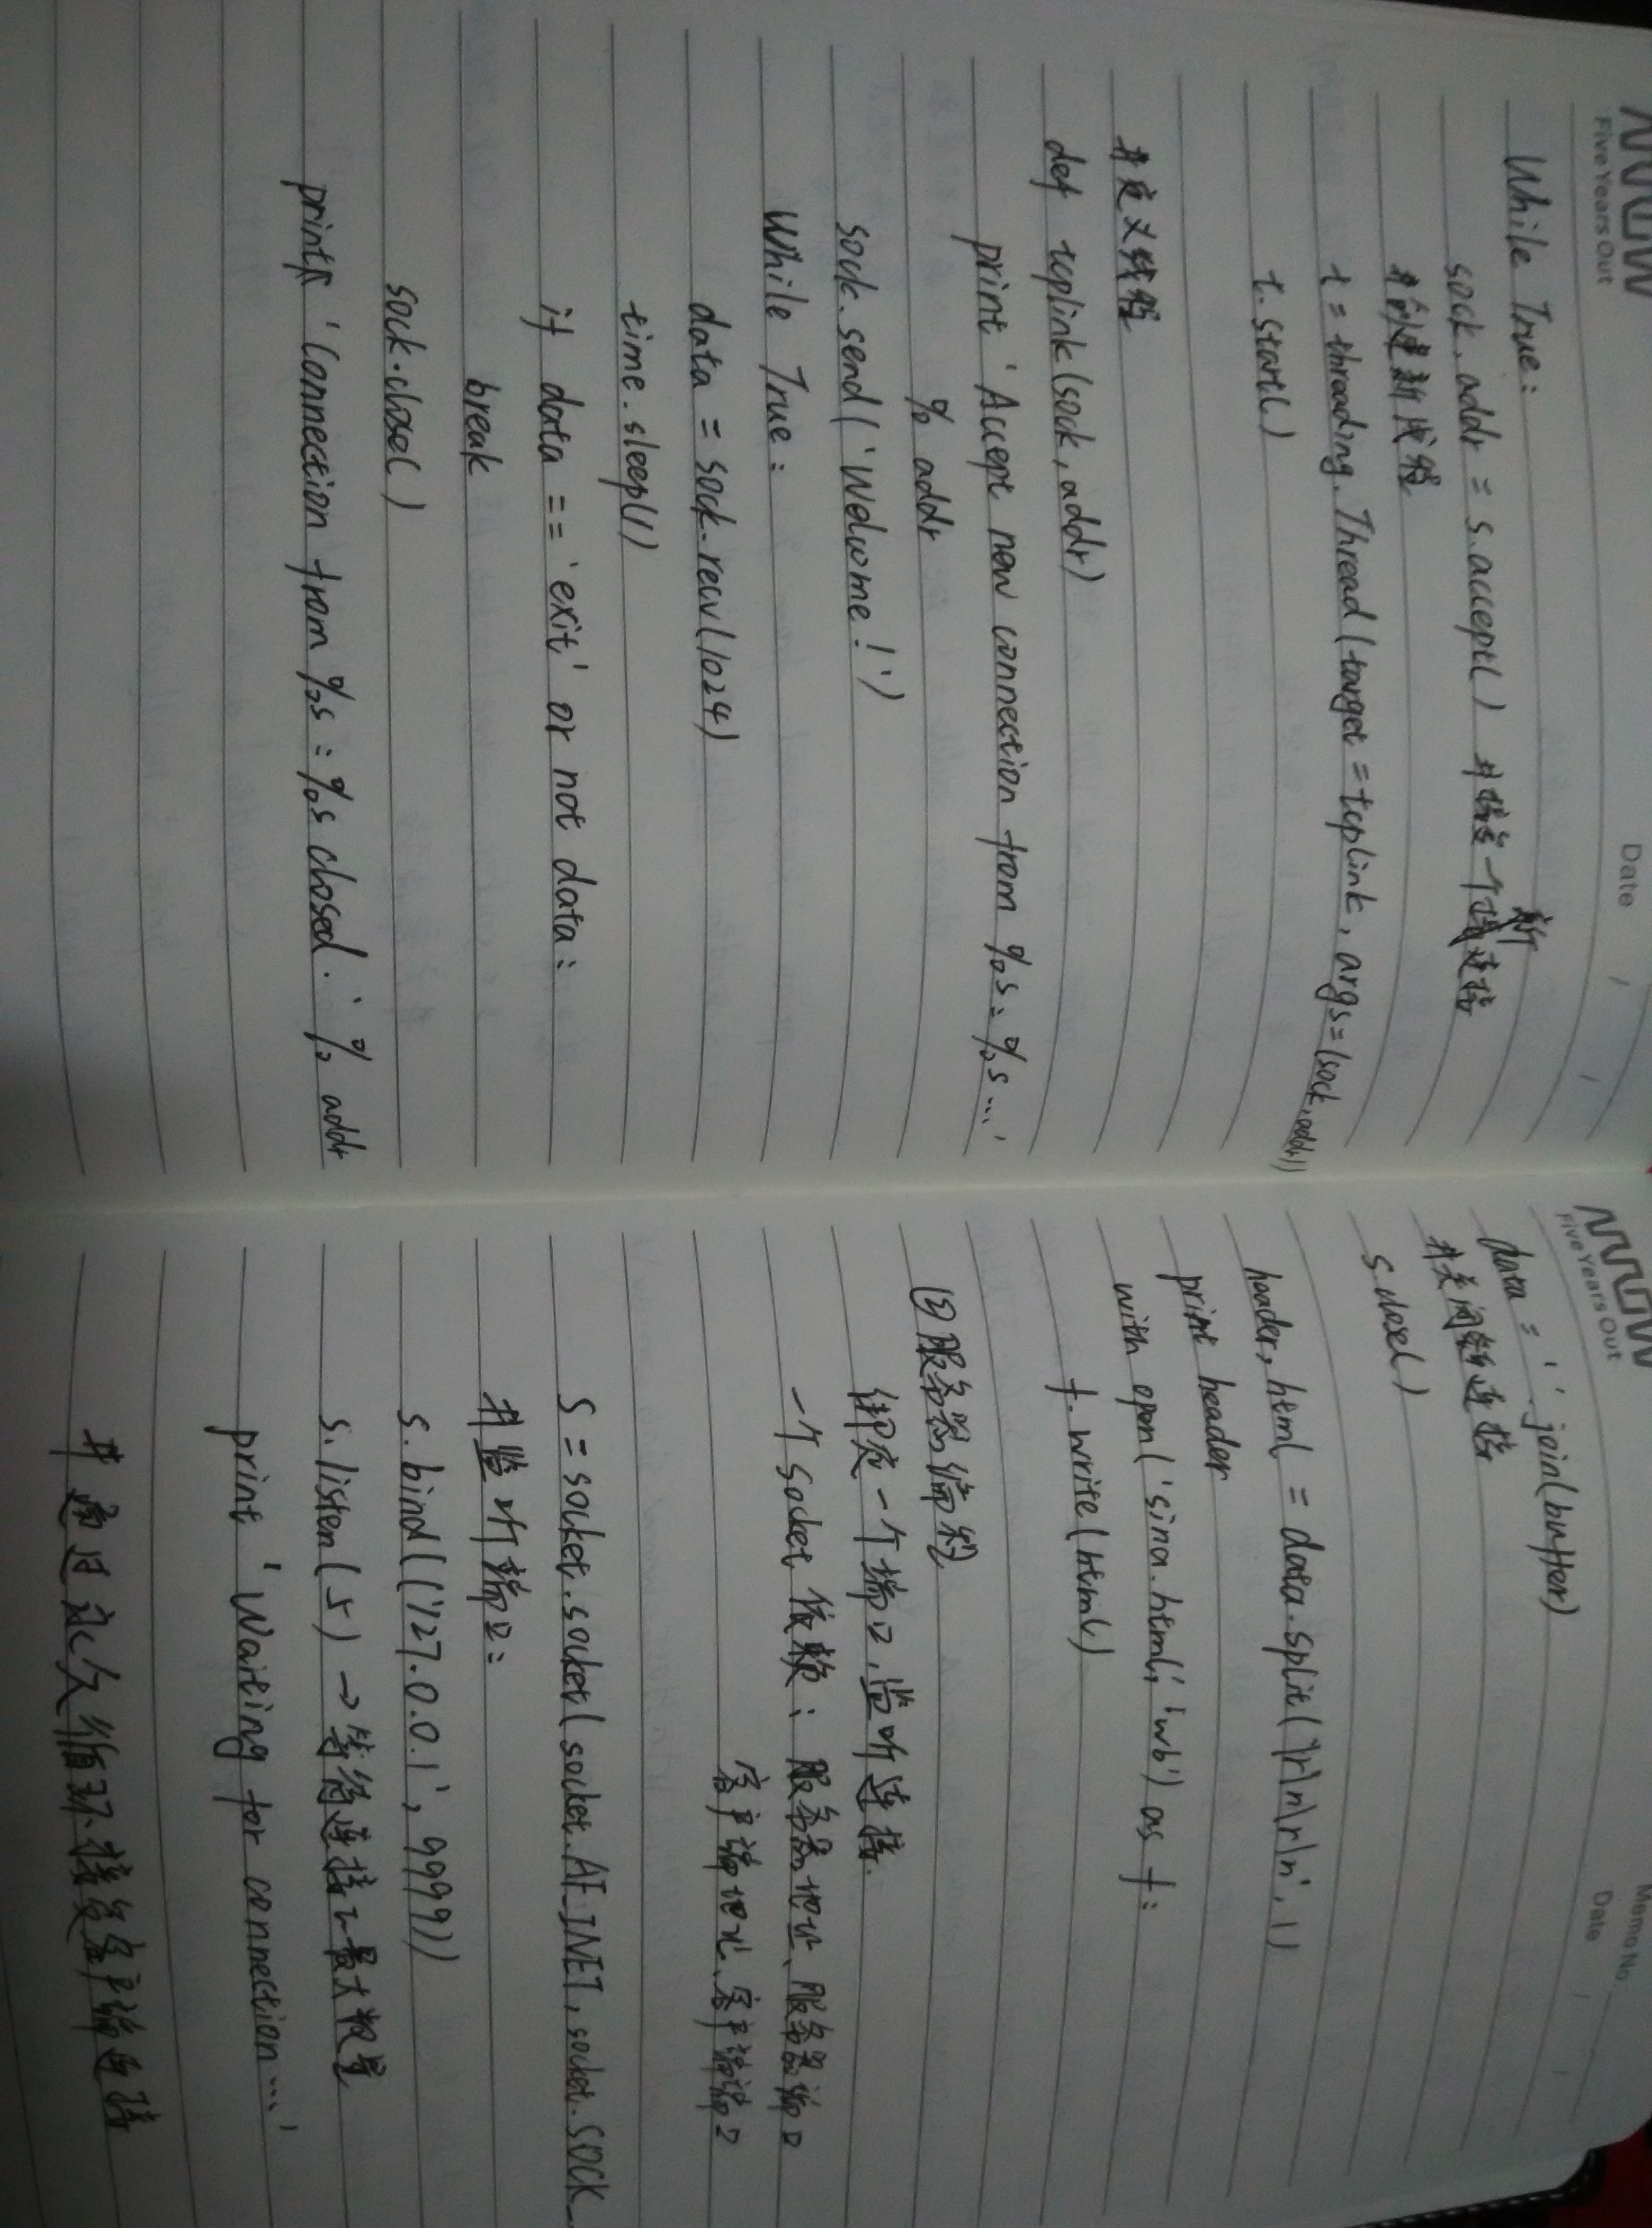 Five Years Out
Date / /
While True:
sock, addr = s.accept() #接受一个新连接
#创建新线程
t = threading.Thread(target=tcplink, args=(sock, addr))
t.start()
#定义线程
def tcplink(sock, addr)
print 'Accept new connection from %s:%s...'
% addr
sock.send('Welcome!')
While True:
data = sock.recv(1024)
time.sleep(1)
if data == 'exit' or not data:
break
sock.close()
print 'Connection from %s:%s closed.' % addr
Five Years Out
Memo No.
Date / /
data = ''.join(buffer)
#关闭连接
s.close()
header, html = data.split('\r\n\r\n', 1)
print header
with open('sina.html', 'wb') as f:
f.write(html)
服务器编程
绑定一个端口,监听连接.
一个Socket依赖:服务器地址、服务器端口
客户端地址、客户端端口
S = socket.socket(socket.AF_INET, socket.SOCK_
#监听端口:
s.bind(('127.0.0.1', 9999))
s.listen(5) → 等待连接的最大数量
print 'Waiting for connection...'
#通过永久循环接受客户端连接